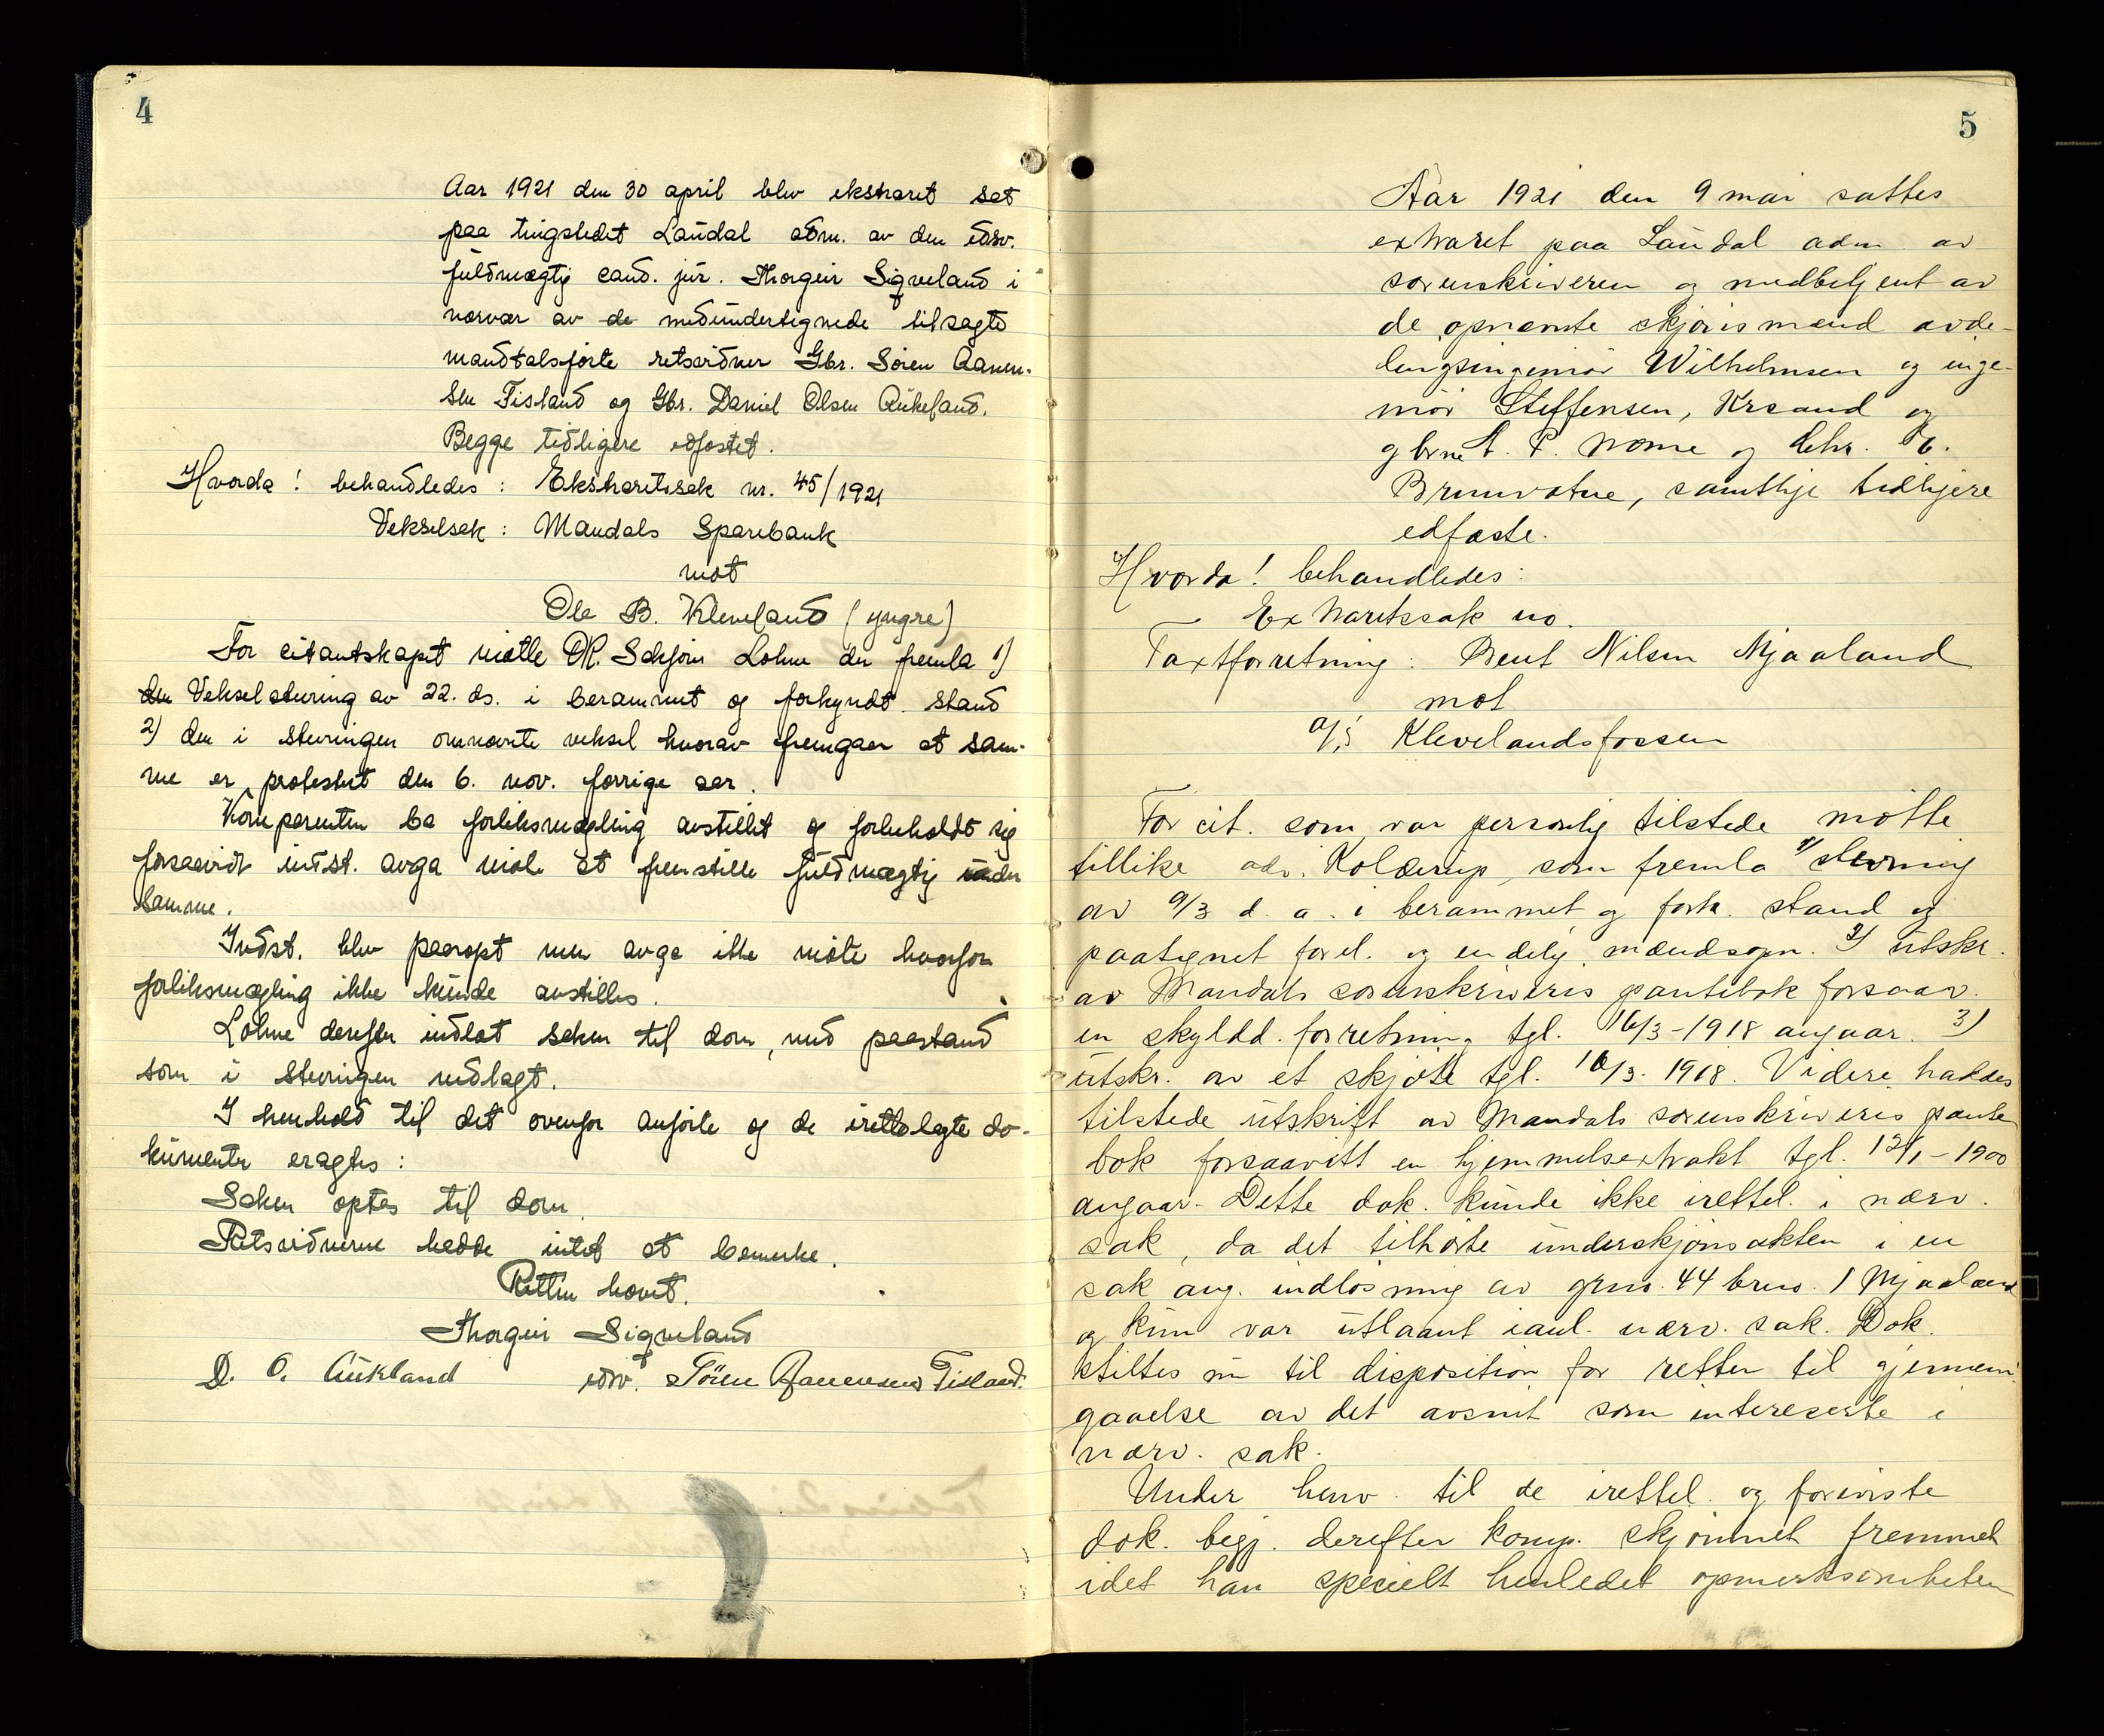 4
Aar 1921 den 30 april blev ekstraret sat
paa tingstedet Laudal adm. av den edsv.
fuldmægtig cand. jur. Thorgeir Sigveland i
nærvær av de medundertegnede tilsagte
mandtalsførte retsvidner Gbr. Sören Aanen-
sen Fisland og Gbr. Daniel Olsen Aukland.
Begge tidligere edfæstet.
Hvorda! behandledes: Ekstraretssak nr. 45/1921
Vekselsak: Mandals Sparebank
mot
Ole B. Kleveland (yngre)
For citantskapet møtte OR. Sakfører Lohne der fremla 1)
den Vekselstevning av 22. ds. i berammet og forkyndt stand
2) den i stevningen omnævnte veksel hvorav fremgaar at sam-
me er protestert den 6. nov. forrige aar.
Komparenten ba forliksmægling avstillet og forbeholdt sig
forsaavidt indst. avga møte at fremstille fuldmægtig under
samme.
Indst. blev paaropt men avga ikke møte hvorfor
forliksmægling ikke kunde anstilles.
Lohne derefter indlot saken til dom, med paastand
som i stevningen nedlagt.
I henhold til det ovenfor anførte og de irettelagte do-
kumenter eragtes:
Saken optas til dom.
Retsvidnerne hadde intet at bemerke.
Retten hævet.
Thorgeir Sigveland
D. O. Aukland edsv. Sören Aanensen Fisland.
5
Aar 1921 den 9 mai sattes
extraret paa Laudal adm av
sorenskriveren og medbetjent av
de opnævnte skjønsmænd avde-
lingsingeniør Wilhelmsen og inge-
niør Steffensen, Krsand og
gbrne A. P. Nome og Chr. T.
Brunvatne, samtlige tidligere
edfæste.
Hvorda! behandledes:
Extraretssak no.
Taxtforretning: Bent Nilsen Mjaaland
mot
a/s Klevelandsfossen
For cit. som var personlig tilstede møtte
tillike adv. Kolderup, som fremla 1) stevning
av 9/3 d. a. i berammet og fork. stand og
paategnet forel. og endelig mændsopn. 2) utskr.
av Mandals sorenskriveris pantebok forsaav.
en skyldd. forretning tgl. 16/3-1918 angaar. 3)
utskr. av et skjøte tgl. 16/3-1918. Videre haddes
tilstede utskrift av Mandals sorenskriveris pante
bok forsaavitt en hjemmelsextrakt tgl. 12/1-1900
angaar. Dette dok. kunde ikke irettel. i nærv.
sak, da det tilhørte underskjønsakten i en
sak ang. indløsning av grno. 44 brno. 1 Mjaaland
og kun var utlaant ianl. nærv. sak. Dok.
stiltes nu til disposition for retten til gjennem-
gaaelse av det avsnit som intereserte i
nærv. sak.
Under henv. til de irettel. og foreviste
dok. begj. derefter komp. skjønnet fremmet
idet han specielt henledet opmerksomheten